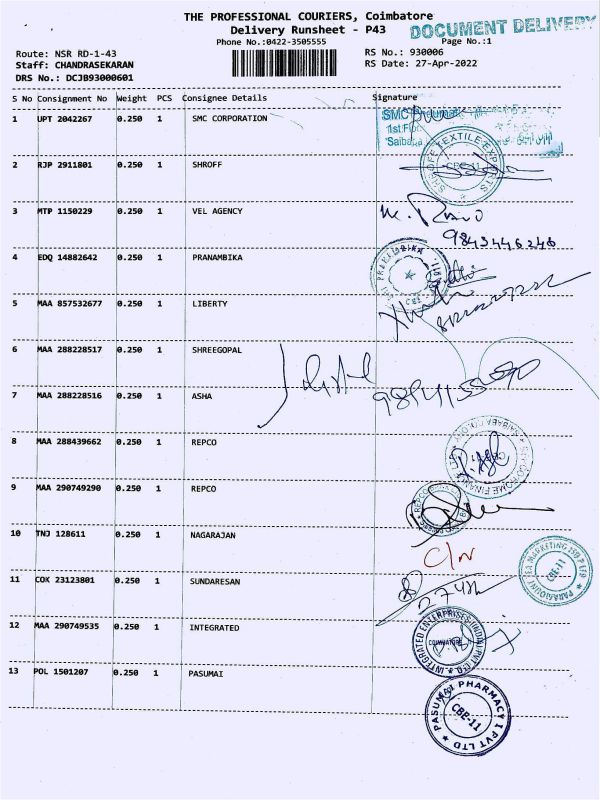 THE PROFESSIONAL COURIERS, Coimbatore
DOCUMENT DELIVERY
Delivery Runsheet - P43
Phone No.:0422-3505555
Page No.:1
Route: NSR RD-1-43
RS No.: 930006
Staff: CHANDRASEKARAN
RS Date: 27-Apr-2022
DRS No.: DCJB93000601
S No Consignment No Weight PCS Consignee Details Signature
1 UPT 2042267 0.250 1 SMC CORPORATION
SMC Pneumatic
1st Floor
2 RJP 2911801 0.250 1 SHROFF
SHROFF TEXTILE EXPORTS
CBE-11
3 MTP 1150229 0.250 1 VEL AGENCY
9843446246
4 EDQ 14882642 0.250 1 PRANAMBIKA
5 MAA 857532677 0.250 1 LIBERTY
6 MAA 288228517 0.250 1 SHREEGOPAL
7 MAA 288228516 0.250 1 ASHA
8 MAA 288439662 0.250 1 REPCO
9 MAA 290749290 0.250 1 REPCO
10 TNJ 128611 0.250 1 NAGARAJAN
C/N
11 COK 23123801 0.250 1 SUNDARESAN
CBE-11
12 MAA 290749535 0.250 1 INTEGRATED
INTEGRATED ENTERPRISES (INDIA) PVT LTD
COIMBATORE
13 POL 1501207 0.250 1 PASUMAI
PASUMAI PHARMACY I PVT LTD
CBE-11